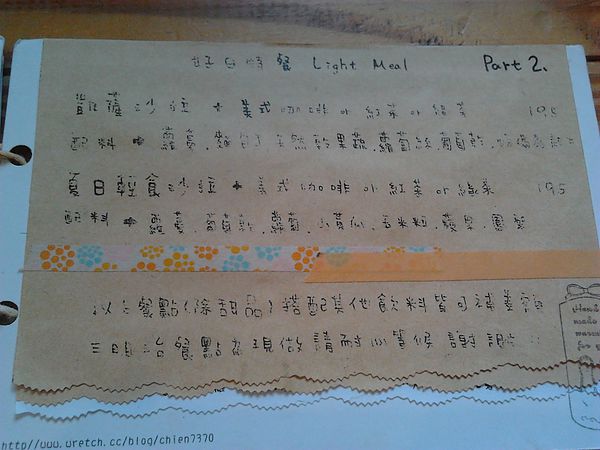 好日時餐 Light Meal Part 2.
凱薩沙拉 + 美式咖啡 or 紅茶 or 綠茶 195
配料 → 蘿蔓. 麵包丁 天然乾果蔬. 蘿蔔絲 葡萄乾.
夏日輕食沙拉 + 美式咖啡 or 紅茶 or 綠茶 195
配料 → 蘿蔓. 葡萄乾. 蘿蔔. 小黃瓜. 玉米粒. 蘋果.
以上餐點(除甜品)搭配其他飲料皆可補差額
三明治餐點為現做 請耐心等候 謝謝
Hand made
for
http://www.wretch.cc/blog/chien7370